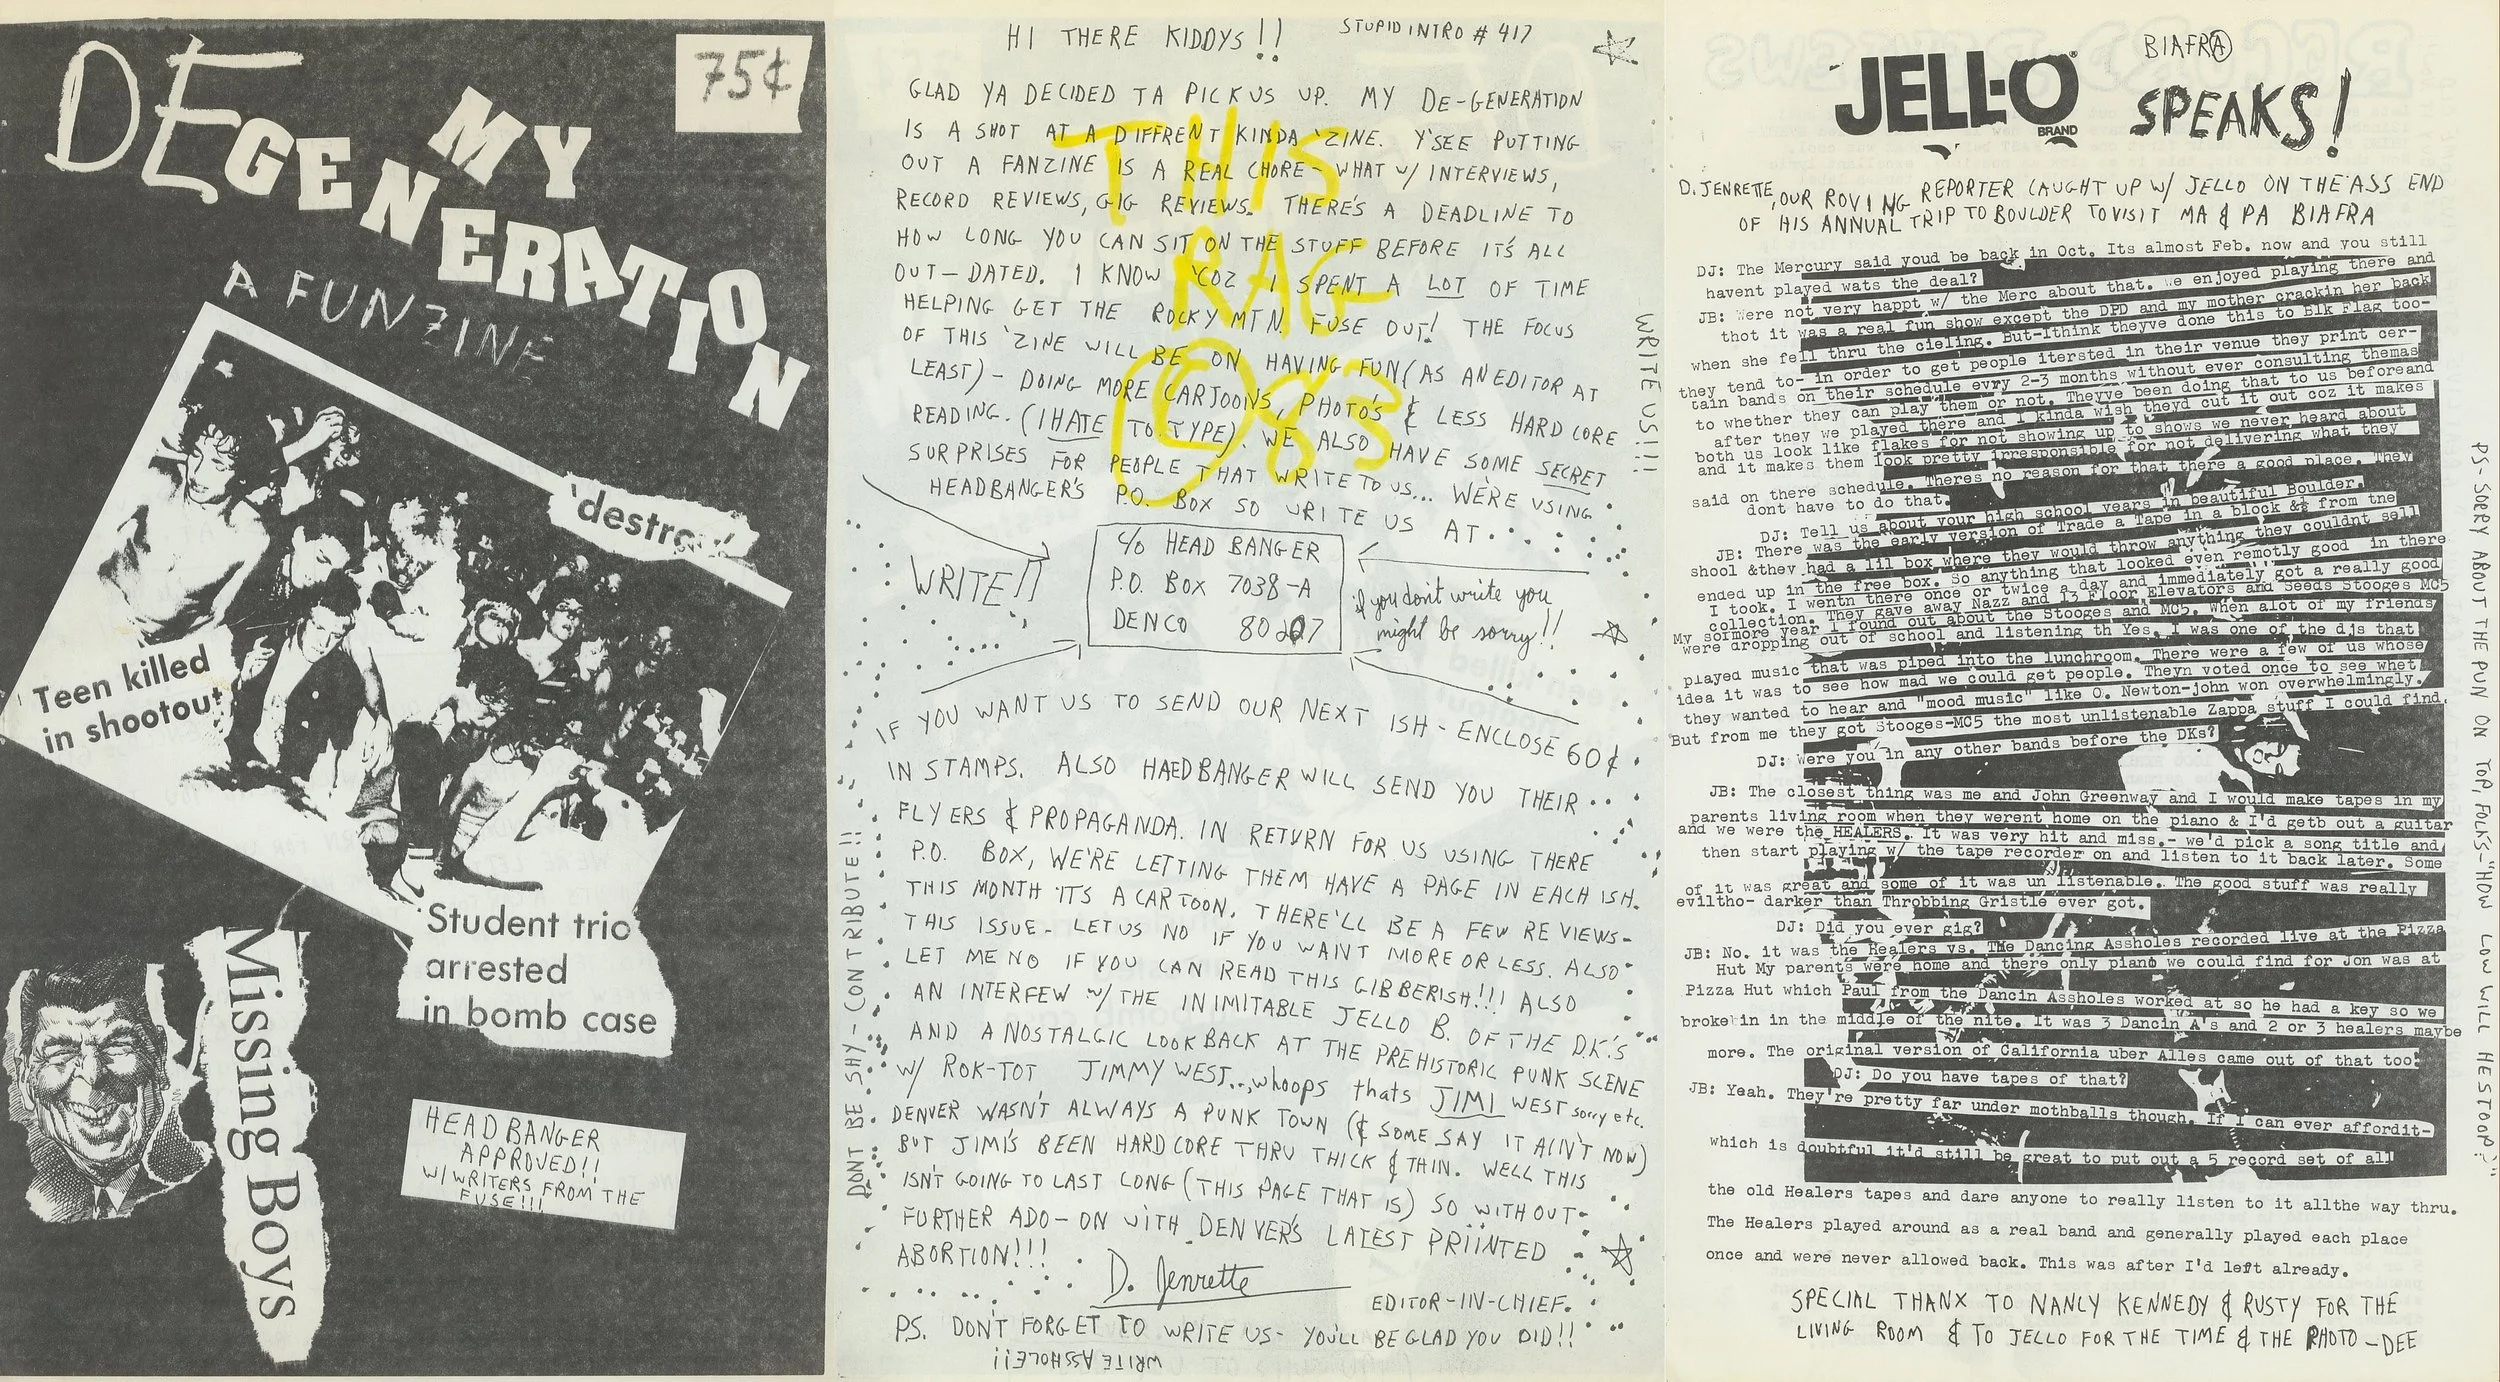 75¢
MY
DEGENERATION
A FUNZINE
'destroy'
Teen killed
in shootout
Student trio
arrested
in bomb case
Missing Boys
HEADBANGER
APPROVED!!
W/WRITERS FROM THE
FUSE!!!
HI THERE KIDDYS!!
STUPID INTRO # 417
GLAD YA DECIDED TA PICK US UP. MY DE-GENERATION
IS A SHOT AT A DIFFRENT KINDA 'ZINE. Y'SEE PUTTING
OUT A FANZINE IS A REAL CHORE- WHAT W/ INTERVIEWS,
RECORD REVIEWS, GIG REVIEWS. THERE'S A DEADLINE TO
HOW LONG YOU CAN SIT ON THE STUFF BEFORE IT'S ALL
OUT-DATED. I KNOW 'COZ I SPENT A LOT OF TIME
HELPING GET THE ROCKY MTN. FUSE OUT! THE FOCUS
OF THIS 'ZINE WILL BE ON HAVING FUN (AS AN EDITOR AT
LEAST) - DOING MORE CARTOONS, PHOTO'S & LESS HARD CORE
READING. (I HATE TO TYPE). WE ALSO HAVE SOME SECRET
SURPRISES FOR PEOPLE THAT WRITE TO US... WE'RE USING
HEADBANGER'S P.O. BOX SO WRITE US AT...
THIS
RAG
© 83
WRITE US!!!
WRITE!!
C/O HEAD BANGER
P.O. BOX 7038-A
DEN CO 80207
if you don't write you
might be sorry!!
IF YOU WANT US TO SEND OUR NEXT ISH - ENCLOSE 60¢
IN STAMPS. ALSO HAEDBANGER WILL SEND YOU THEIR
FLYERS & PROPAGANDA. IN RETURN FOR US USING THERE
P.O. BOX, WE'RE LETTING THEM HAVE A PAGE IN EACH ISH.
THIS MONTH IT'S A CARTOON. THERE'LL BE A FEW REVIEWS-
THIS ISSUE- LET US NO IF YOU WANT MORE OR LESS. ALSO
LET ME NO IF YOU CAN READ THIS GIBBERISH!!! ALSO
AN INTERFEW W/ THE INIMITABLE JELLO B. OF THE D.K.'S
AND A NOSTALGIC LOOK BACK AT THE PREHISTORIC PUNK SCENE
W/ ROK-TOT JIMMY WEST..,whoops thats JIMI WEST sorry etc.
DENVER WASN'T ALWAYS A PUNK TOWN (& SOME SAY IT AIN'T NOW)
BUT JIMI'S BEEN HARD CORE THRU THICK & THIN. WELL THIS
ISN'T GOING TO LAST LONG (THIS PAGE THAT IS) SO WITH OUT-
FURTHER ADO- ON WITH DENVER'S LATEST PRIINTED
ABORTION!!!
D. Jenrette
EDITOR-IN-CHIEF.
PS. DON'T FORGET TO WRITE US- YOU'LL BE GLAD YOU DID!!
WRITE ASSHOLE!!
DONT BE SHY-CONTRIBUTE!!
JELL-O
BRAND
BIAFRA
SPEAKS!
D. JENRETTE, OUR ROVING REPORTER CAUGHT UP W/ JELLO ON THE ASS END
OF HIS ANNUAL TRIP TO BOULDER TO VISIT MA & PA BIAFRA
DJ: The Mercury said youd be back in Oct. Its almost Feb. now and you still
havent played wats the deal?
JB: Were not very happt w/ the Merc about that. We enjoyed playing there and
thot it was a real fun show except the DPD and my mother crackin her back
when she fell thru the cieling. But-Ithink theyve done this to Blk Flag too-
they tend to- in order to get people itersted in their venue they print cer-
tain bands on their schedule evry 2-3 months without ever consulting themas
to whether they can play them or not. Theyve been doing that to us beforeand
after they we played there and I kinda wish theyd cut it out coz it makes
both us look like flakes for not showing up to shows we never heard about
and it makes them look pretty irresponsible for not delivering what they
said on there schedule. Theres no reason for that there a good place. They
dont have to do that.
DJ: Tell us about your high school years in beautiful Boulder.
JB: There was the early version of Trade a Tape in a block &½ from the
shool &they had a lil box where they would throw anything they couldnt sell
ended up in the free box. So anything that looked even remotly good in there
I took. I wentn there once or twice a day and immediately got a really good
collection. They gave away Nazz and 13 Floor Elevators and Seeds Stooges MC5
My sormore year I found out about the Stooges and MC5. When alot of my friends
were dropping out of school and listening th Yes. I was one of the djs that
played music that was piped into the lunchroom. There were a few of us whose
idea it was to see how mad we could get people. Theyn voted once to see whet
they wanted to hear and "mood music" like O. Newton-john won overwhelmingly.
But from me they got Stooges-MC5 the most unlistenable Zappa stuff I could find.
DJ: Were you in any other bands before the DKs?
JB: The closest thing was me and John Greenway and I would make tapes in my
parents living room when they werent home on the piano & I'd getb out a guitar
and we were the HEALERS. It was very hit and miss.- we'd pick a song title and
then start playing w/ the tape recorder on and listen to it back later. Some
of it was great and some of it was un listenable. The good stuff was really
eviltho- darker than Throbbing Gristle ever got.
DJ: Did you ever gig?
JB: No. it was the Healers vs. The Dancing Assholes recorded live at the Pizza
Hut My parents were home and there only piano we could find for Jon was at
Pizza Hut which Paul from the Dancin Assholes worked at so he had a key so we
broke in in the middle of the nite. It was 3 Dancin A's and 2 or 3 healers maybe
more. The original version of California uber Alles came out of that too.
DJ: Do you have tapes of that?
JB: Yeah. They're pretty far under mothballs though. If I can ever affordit-
which is doubtful it'd still be great to put out a 5 record set of all
the old Healers tapes and dare anyone to really listen to it allthe way thru.
The Healers played around as a real band and generally played each place
once and were never allowed back. This was after I'd left already.
SPECIAL THANX TO NANCY KENNEDY & RUSTY FOR THE
LIVING ROOM & TO JELLO FOR THE TIME & THE PHOTO -DEE
PS- SORRY ABOUT THE PUN ON TOP, FOLKS- "HOW LOW WILL HE STOOP?"